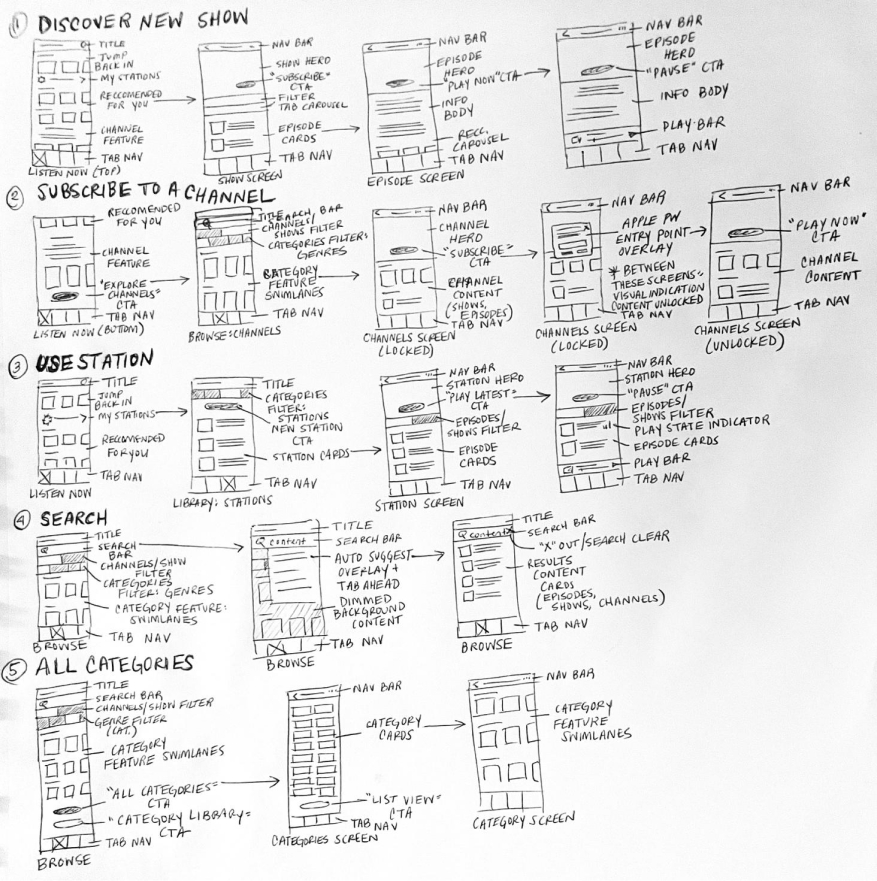 1 DISCOVER NEW SHOW
TITLE
JUMP
BACK IN
MY STATIONS
RECCOMENDED
FOR YOU
CHANNEL
FEATURE
TAB NAV
LISTEN NOW (TOP)
NAV BAR
SHOW HERO
"SUBSCRIBE"
CTA
FILTER
TAB CAROUSEL
EPISODE
CARDS
TAB NAV
SHOW SCREEN
NAV BAR
EPISODE
HERO
"PLAY NOW" CTA
INFO
BODY
RECC.
CAROUSEL
TAB NAV
EPISODE SCREEN
NAV BAR
EPISODE
HERO
"PAUSE" CTA
INFO BODY
PLAY-BAR
TAB NAV
2 SUBSCRIBE TO A CHANNEL
RECCOMENDED
FOR YOU
CHANNEL
FEATURE
"EXPLORE
CHANNELS"
CTA
TAB NAV
LISTEN NOW (BOTTOM)
TITLE
SEARCH BAR
CHANNELS/
SHOWS FILTER
CATEGORIES FILTER:
GENRES
CATEGORY
FEATURE
SWIMLANES
TAB NAV
BROWSE: CHANNELS
NAV BAR
CHANNEL
HERO
"SUBSCRIBE"
CTA
CHANNEL
CONTENT
(SHOWS,
EPISODES)
TAB NAV
CHANNELS SCREEN
(LOCKED)
NAV BAR
APPLE PW
ENTRY POINT
OVERLAY
* BETWEEN
THESE SCREENS:
VISUAL INDICATION
CONTENT UNLOCKED
TAB NAV
CHANNELS SCREEN
(LOCKED)
NAV BAR
"PLAY NOW"
CTA
CHANNEL
CONTENT
TAB NAV
CHANNELS SCREEN
(UNLOCKED)
3 USE STATION
TITLE
JUMP
BACK IN
MY STATIONS
RECOMMENDED
FOR YOU
TAB NAV
LISTEN NOW
TITLE
CATEGORIES
FILTER:
STATIONS
NEW STATION
CTA
STATION CARDS
TAB NAV
LIBRARY: STATIONS
NAV BAR
STATION HERO
"PLAY LATEST"
CTA
EPISODES/
SHOWS FILTER
EPISODE
CARDS
TAB NAV
STATION SCREEN
NAV BAR
STATION HERO
"PAUSE" CTA
EPISODES/
SHOWS FILTER
PLAY STATE INDICATOR
EPISODE CARDS
PLAY BAR
TAB NAV
4 SEARCH
TITLE
SEARCH
BAR
CHANNELS/SHOW
FILTER
CATEGORIES
FILTER: GENRES
CATEGORY FEATURE:
SWIMLANES
TAB NAV
BROWSE
content
TITLE
SEARCH BAR
AUTO SUGGEST
OVERLAY +
TAB AHEAD
DIMMED
BACKGROUND
CONTENT
TAB NAV
BROWSE
content X
TITLE
SEARCH BAR
"X" OUT/SEARCH CLEAR
RESULTS
CONTENT
CARDS
(EPISODES,
SHOWS, CHANNELS)
TAB NAV
BROWSE
5 ALL CATEGORIES
TITLE
SEARCH BAR
CHANNELS/SHOW FILTER
GENRE FILTER
(CAT.)
CATEGORY
FEATURE SWIMLANES
"ALL CATEGORIES"
CTA
"CATEGORY LIBRARY"
CTA
TAB NAV
BROWSE
NAV BAR
CATEGORY
CARDS
"LIST VIEW"
CTA
TAB NAV
CATEGORIES SCREEN
NAV BAR
CATEGORY
FEATURE
SWIMLANES
CATEGORY SCREEN